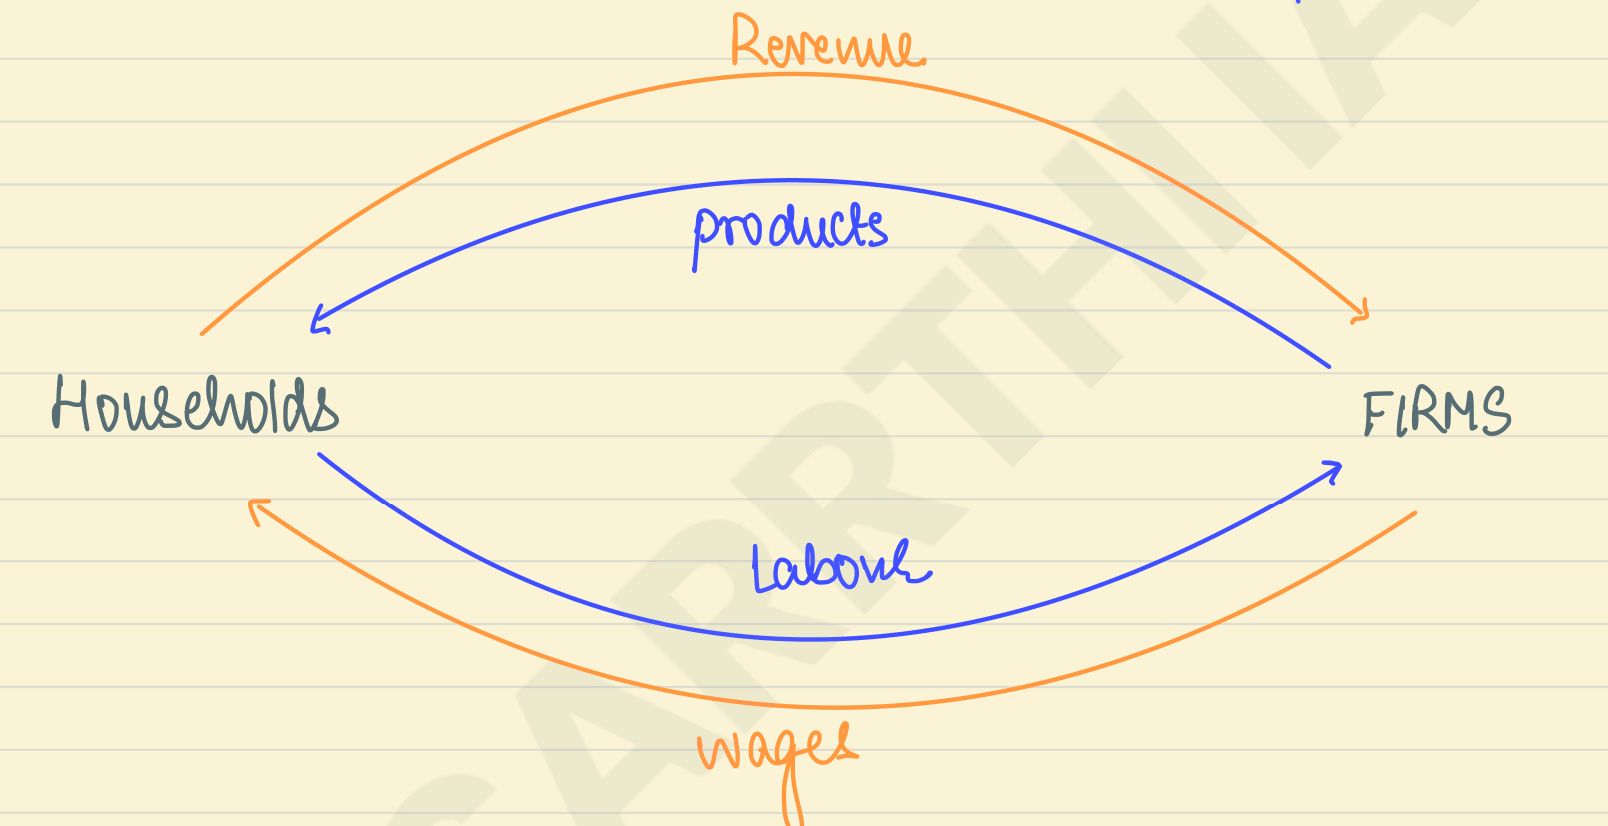 Revenue
products
Households
FIRMS
Labour
wages
SARTHIA